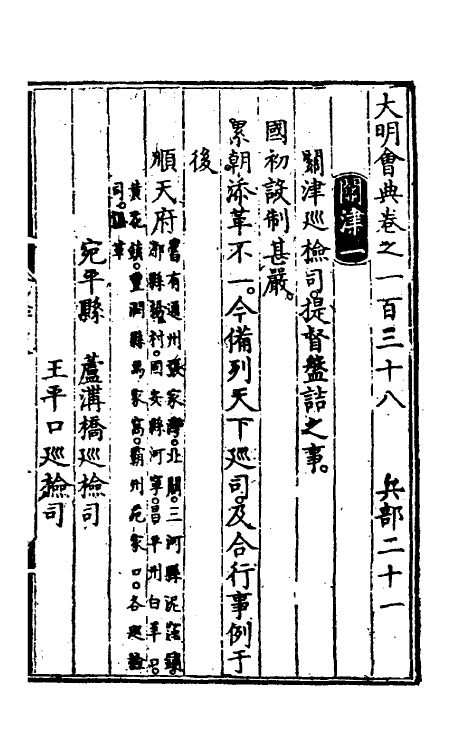 大明會典卷之一百三十八 兵部二十一
關津一
關津巡檢司。提督盤詰之事。
國初設制甚嚴。
累朝添革不一。今備列天下巡司。及合行事例于
後
順天府
舊有通州張家灣。北關。三河縣泥窪鎮。
郡縣 村。固安縣河寧。昌平州白羊口。
黃花鎮。豐潤縣 家 。霸州苑家口。各巡檢
司。俱革
宛平縣 蘆溝橋巡檢司
王平口巡檢司